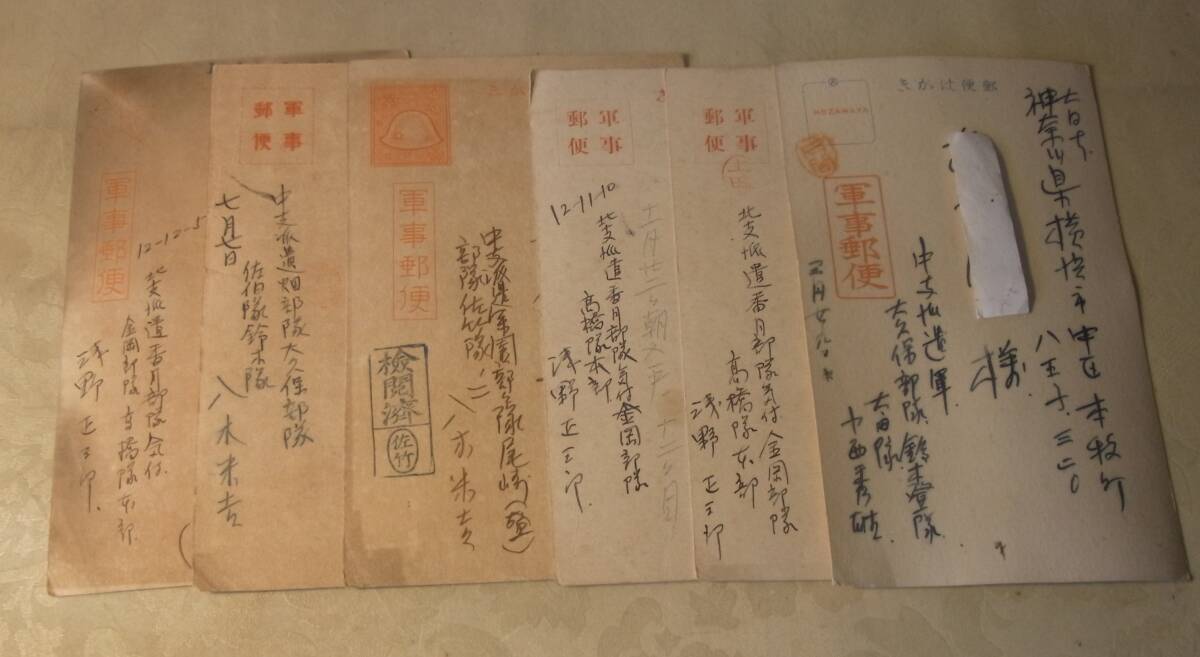 軍事郵便
12-12-5
北支派遣香月部隊気付
金岡部隊高橋隊本部
浅野正三郎
軍事
郵便
中支派遣畑部隊大久保部隊
佐伯隊鈴木隊
八木米吉
七月七日
軍事郵便
部隊佐竹隊
八木米吉
検閲済
佐竹
軍事
郵便
12-11-10
北支派遣香月部隊気付金岡部隊
高橋隊本部
浅野正三郎
軍事
郵便
北支派遣香月部隊気付金岡部隊
高橋隊本部
浅野正三郎
郵便はがき
NOZAWAYA
軍事郵便
神奈川県横浜市中区本牧町
八五ノ三二〇
様
中支派遣軍
大久保部隊鈴木登隊
太田隊